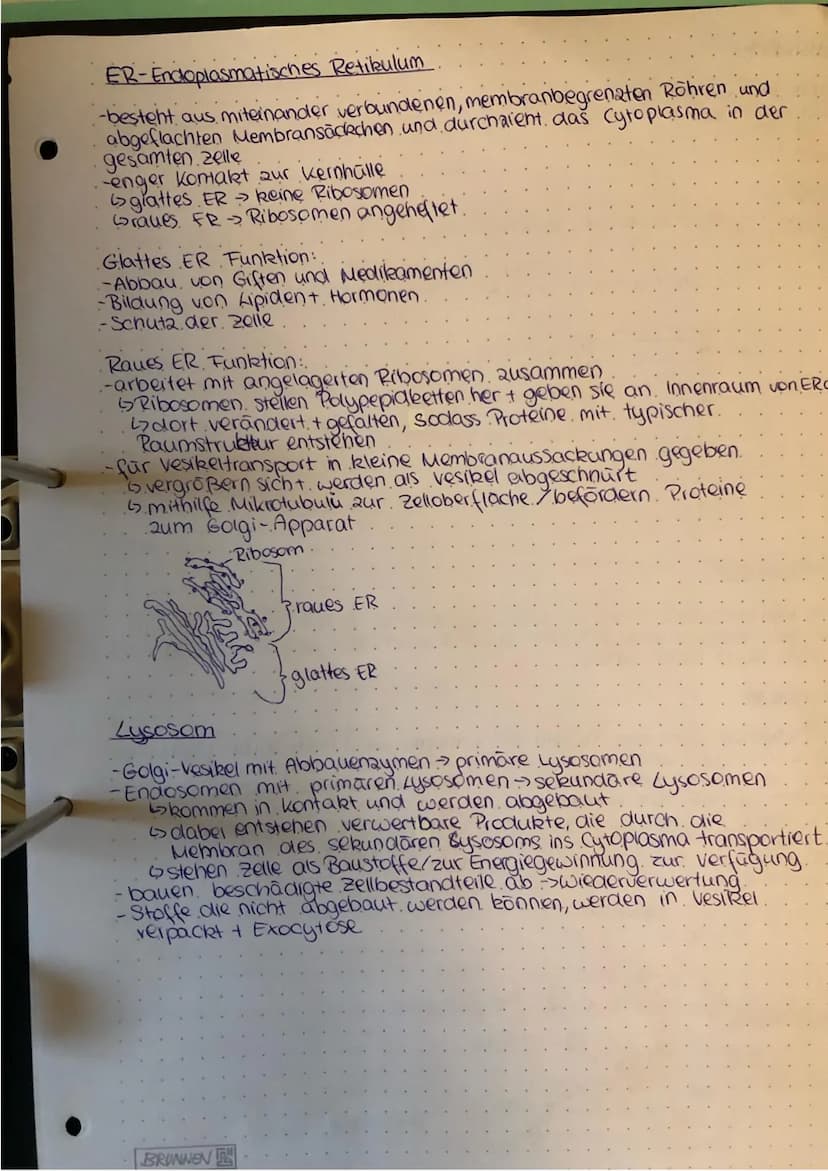 ER-Endoplasmatisches Retikulum
-besteht aus miteinander verbundenen, membranbegrenzten Röhren und
abgeflachten Membransäckchen und durchzieht das Cytoplasma in der
gesamten Zelle
-enger Kontakt zur Kernhülle
↳glattes ER → keine Ribosomen
↳raues ER → Ribosomen angeheftet
Glattes ER Funktion:
-Abbau von Giften und Medikamenten
-Bildung von Lipiden + Hormonen
-Schutz der Zelle
Raues ER Funktion:
-arbeitet mit angelagerten Ribosomen zusammen
↳Ribosomen stellen Polypepidketten her + geben sie an Innenraum von ER
↳dort verändert + gefalten, sodass Proteine mit typischer
Raumstruktur entstehen
-für Vesikeltransport in kleine Membranaussackungen gegeben
↳vergrößern sich + werden als Vesikel abgeschnürt
↳mithilfe Mikrotubuli zur Zelloberfläche / befördern Proteine
zum Golgi-Apparat
Ribosom
raues ER
glattes ER
Lysosom
-Golgi-Vesikel mit Abbauenzymen → primäre Lysosomen
-Endosomen mit primären Lysosomen → sekundäre Lysosomen
↳kommen in Kontakt und werden abgebaut
↳dabei entstehen verwertbare Produkte, die durch die
Membran des sekundären Lysosoms ins Cytoplasma transportiert
↳stehen Zelle als Baustoffe/zur Energiegewinnung zur Verfügung
-bauen beschädigte Zellbestandteile ab → Wiederverwertung
-Stoffe die nicht abgebaut werden können, werden in Vesikel
verpackt + Exocytose
BRUNNEN